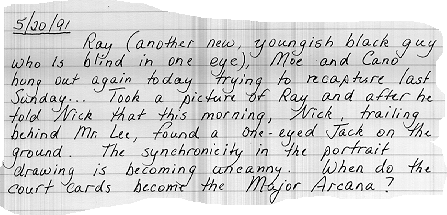 5/20/91
Ray (another new, youngish black guy
who is blind in one eye), Moe and Cano
hung out again today trying to recapture last
Sunday... Took a picture of Ray and after he
told Nick that this morning, Nick, trailing
behind Mr. Lee, found a one-eyed Jack on the
ground. The synchronicity in the portrait
drawing is becoming uncanny. When do the
court cards become the Major Arcana?